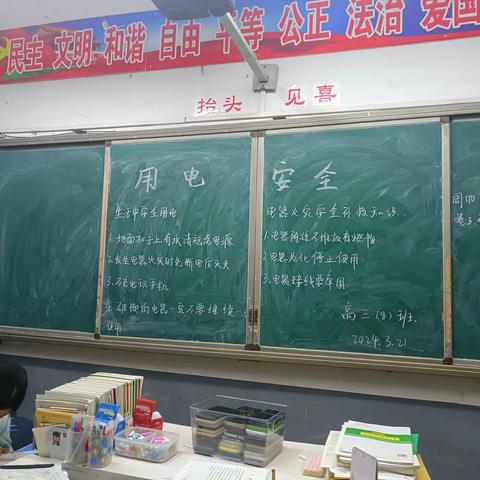 民主 文明 和谐 自由 平等 公正 法治 爱国
抬头 见喜
用电 安全
生活中安全用电
1.地面和手上有水请远离电源
2.发生电器火灾时先断电后灭火
3.不充电玩手机
4.在地的电器一旦不要继续
使用
电器火灾安全补救知识
1.电器附近不堆放有燃物
2.电器老化停止使用
3.电器接线要牢固
高三(8)班
2024.3.21
周四
卷3